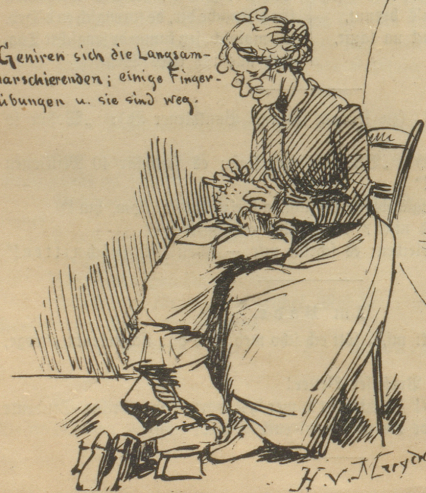 Geniren sich die Langsam-
marschierenden; einige Finger-
übungen u. sie sind weg.
H. v.